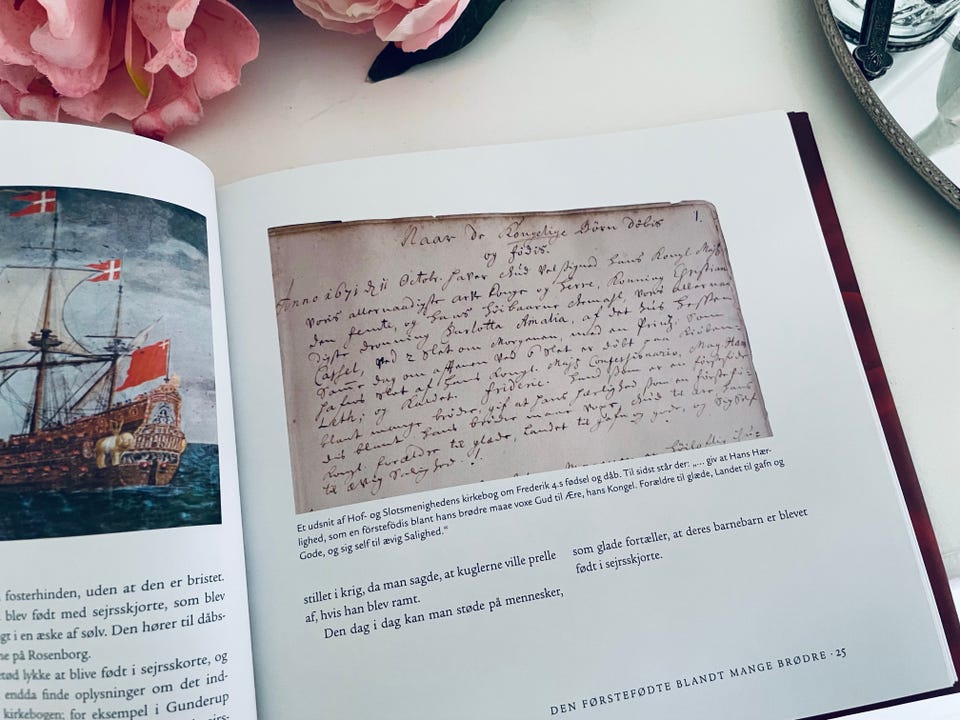 fosterhinden, uden at den er bristet.
blev født med sejrsskjorte, som blev
gt i en æske af sølv. Den hører til dåbs-
ne på Rosenborg.
etød lykke at blive født i sejrsskorte, og
endda finde oplysninger om det ind-
kirkebogen; for eksempel i Gunderup
1.
Naar De Kongelige Börn döbis
og födis.
Anno 1671 d. 11 Octobr. haver Gud velsignet Hans Kongl. Majst
voris allernaadigste Arfve Konge og Herre, Konning Christian
den femte, og hans
dronning Charlotta Amalia, af det huus Hessen
Cassel, ved 2 slet om Morgenen, med en Prinz, som
samme dag om aftenen ved 6 slet er döbt paa
slot af Hans Kongl. Majsts Confessionario, Mag. Hans
og kaldet Frideric. Gud som er en förstefödde
blant mange brödre, gif at hans herlighed som en förstefö-
dis blant hans brödre maae voxe Gud til ære, hans
Kongl. forældre til glæde, Landet til gafn og gode, og sig self
til ævig Salighed!
Et udsnit af Hof- og Slotsmenighedens kirkebog om Frederik 4.s fødsel og dåb. Til sidst står der: „... giv at Hans Hær-
lighed, som en förstefödis blant hans brødre maae voxe Gud til Ære, hans Kongel. Forældre til glæde, Landet til gafn og
Gode, og sig self til ævig Salighed.“
stillet i krig, da man sagde, at kuglerne ville prelle
af, hvis han blev ramt.
Den dag i dag kan man støde på mennesker,
som glade fortæller, at deres barnebarn er blevet
født i sejrsskjorte.
DEN FØRSTEFØDTE BLANDT MANGE BRØDRE · 25